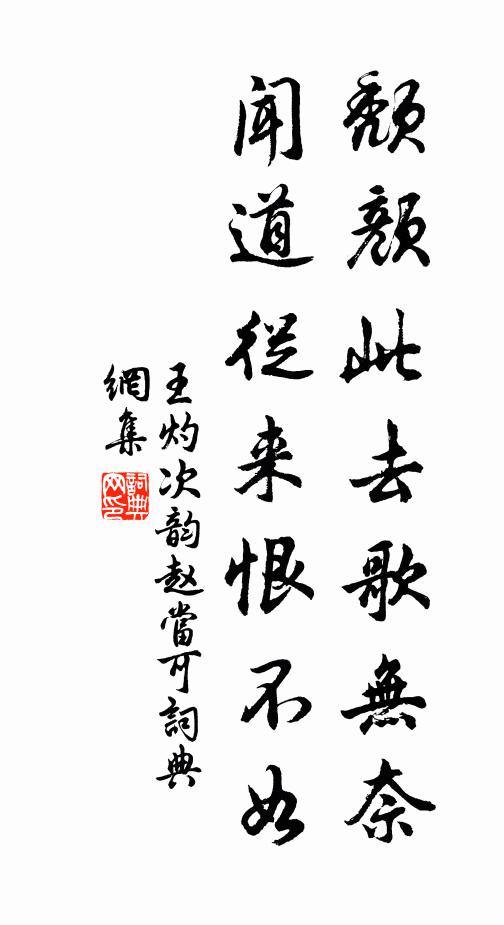 頹顏此去歌無奈
聞道從来恨不如
王灼次韵赵當可詞典
網集
詞典
网印